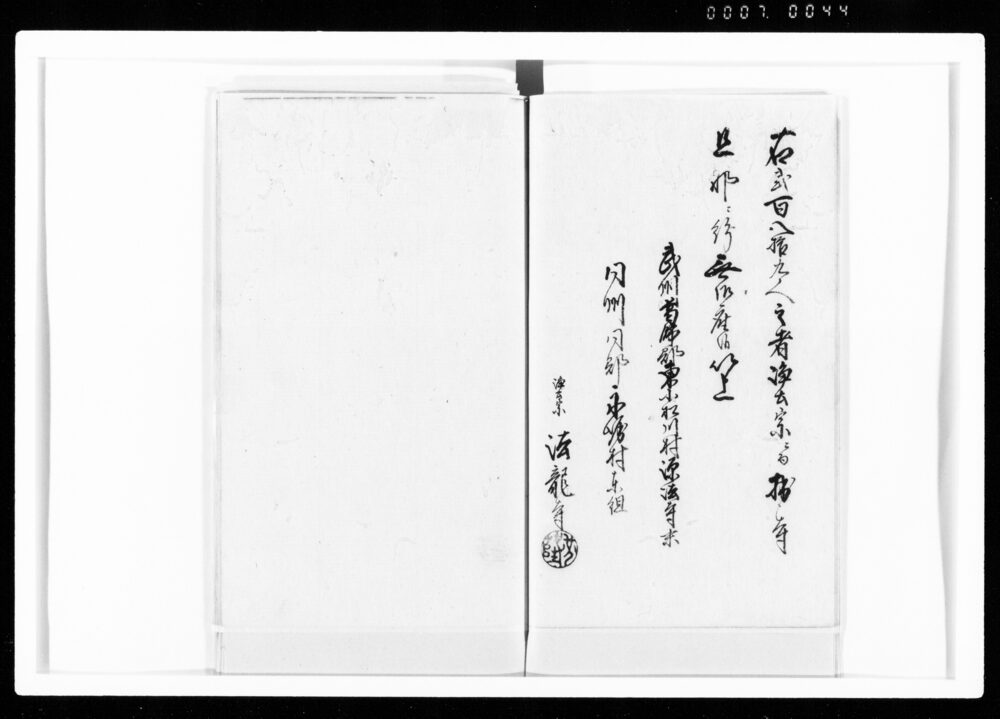 0007. 0044
右弐百八拾九人之者浄土宗ニ而拙寺
旦那ニ紛無御座候以上
武州葛飾郡東小松川村源法寺末
同州同郡永塚村東組
浄土宗 法龍寺